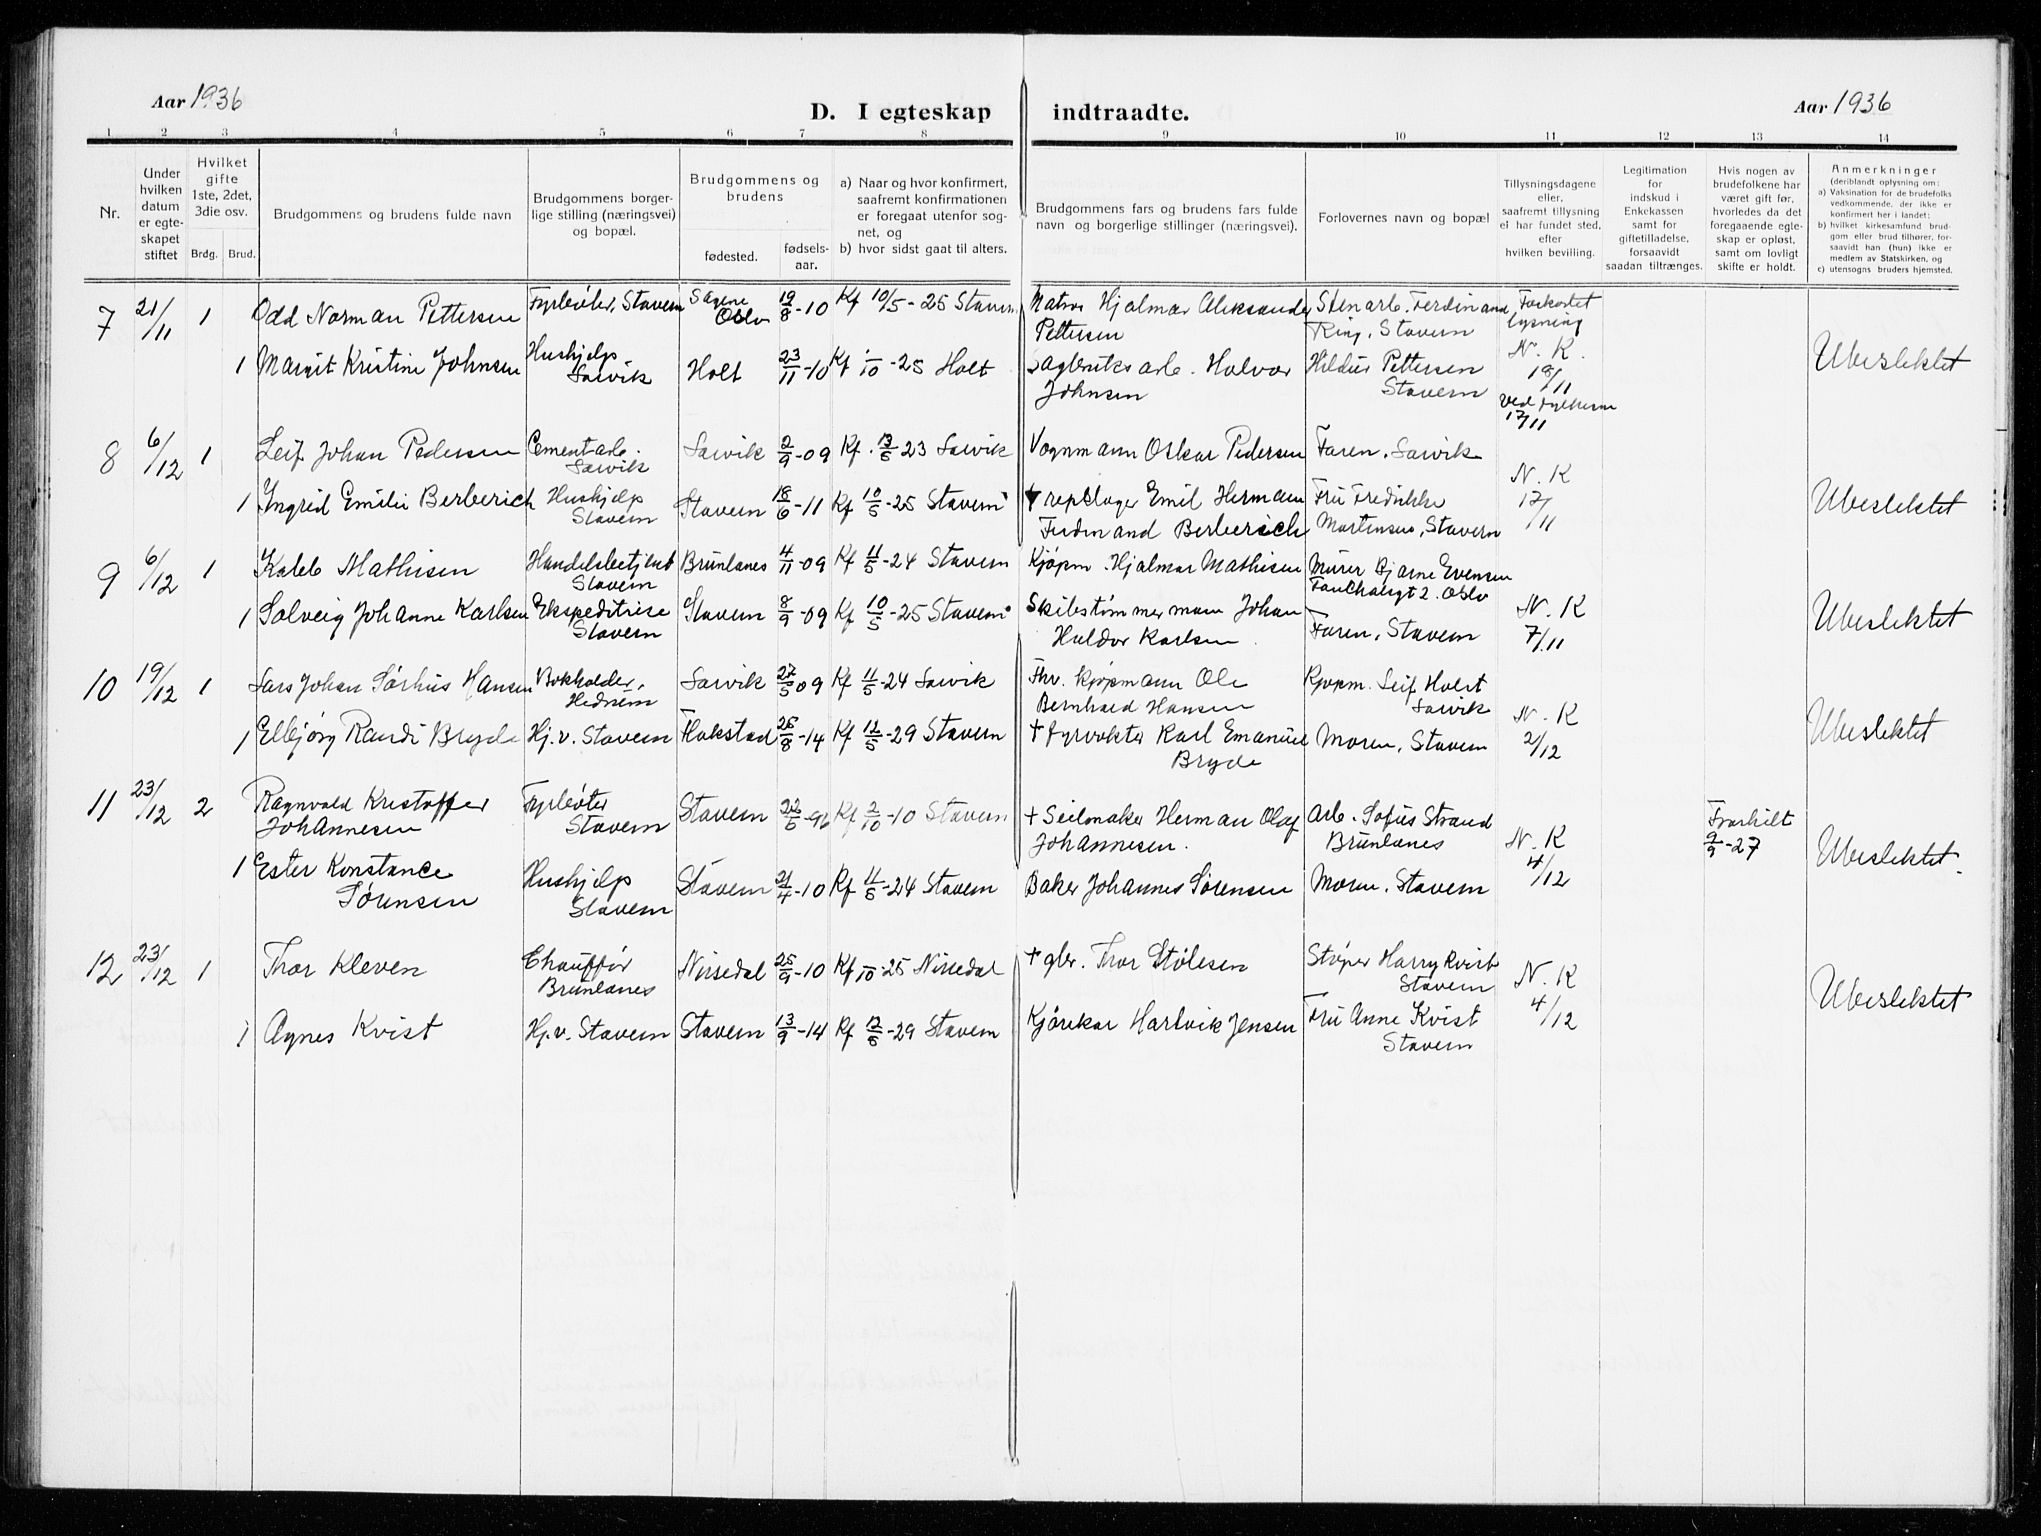 Aar 1936
D. I egteskap indtraadte.
Aar 1936
1 2 3 4 5 6 7 8 9 10 11 12 13 14
Nr.
Under hvilken datum er egteskapet stiftet
Hvilket gifte 1ste, 2det, 3die osv.
Brdg. Brud.
Brudgommens og brudens fulde navn
Brudgommens borgerlige stilling (næringsvei) og bopæl.
Brudgommens og brudens
fødested. fødselsaar.
a) Naar og hvor konfirmert, saafremt konfirmationen er foregaat utenfor sognet, og
b) hvor sidst gaat til alters.
Brudgommens fars og brudens fars fulde navn og borgerlige stillinger (næringsvei).
Forlovernes navn og bopæl
Tillysningsdagene eller, saafremt tillysning ei har fundet sted, efter hvilken bevilling.
Legitimation for indskud i Enkekassen samt for giftetilladelse, forsaavidt saadan tiltrænges.
Hvis nogen av brudefolkene har været gift før, hvorledes da det foregaaende egteskap er opløst, samt om lovligt skifte er holdt.
Anmerkninger
(deriblandt oplysning om:
a) Vaksination for de brudefolks vedkommende, der ikke er konfirmert her i landet;
b) hvilket kirkesamfund brudgom eller brud tilhører, forsaavidt han (hun) ikke er medlem av Statskirken, og
c) utensogns bruders hjemsted.
7 21/11 1 Odd Norman Pettersen Fyrbøter, Stavern Sagene Oslo 19/8-10 Kf 10/5-25 Stavern Matros Hjalmar Aleksander Pettersen Stenarb. Ferdinand Ring, Stavern Forkortet lysning
1 Margit Kristine Johnsen Hushjelp Larvik Holt 23/11-10 Kf /10-25 Holt Sagbruksarb. Halvor Johnsen Hildur Pettersen Stavern N. K. 18/11 17/11 Ubeslektet
8 6/12 1 Leif Johan Pedersen Cementarb. Larvik Larvik 2/9-09 Kf. 13/5-23 Larvik Vognmann Oskar Pedersen Faren, Larvik
1 Ingrid Emilie Berberich Hushjelp Stavern Stavern 18/6-11 Kf 10/5-25 Stavern † repslager Emil Hermann Ferdinand Berberich Fru Fredrikke Martinsen, Stavern N. K 17/11 Ubeslektet
9 6/12 1 Kaleb Mathisen Handelsbetjent Stavern Brunlanes 4/11-09 Kf 11/5-24 Stavern Kjøpm. Hjalmar Mathisen Murer Bjarne Evensen Oslo
1 Solveig Johanne Karlsen Ekspeditrise Stavern Stavern 8/9-09 Kf 10/5-25 Stavern Skibstømmermann Johan Haldor Karlsen Faren, Stavern N. K 7/11 Ubeslektet
10 19/12 1 Lars Johan Sørhus Hansen Bokholder, Hedrum Larvik 27/5 09 Kf 11/5-24 Larvik Fhv. kjøpmann Ole Bernhard Hansen Kjøpm. Leif Holst Larvik
1 Ellbjørg Randi Bryde Hj. v. Stavern Hakstad 28/8-14 Kf 12/5-29 Stavern † fyrvokter Karl Emanuel Bryde Moren, Stavern N. K 2/12 Ubeslektet
11 23/12 2 Ragnvald Kristoffer Johannesen Fyrbøter Stavern Stavern 22/5-96 Kf 2/10-10 Stavern † Seilmaker Herman Olaf Johannesen. Arb. Sofus Strand Brunlanes N. K 4/12 Fraskilt 9/9-27
1 Ester Konstance Sørensen Hushjelp Stavern Stavern 21/4-10 Kf 11/5-24 Stavern Baker Johannes Sørensen Moren, Stavern Ubeslektet.
12 23/12 1 Thor Kleven Chauffør Brunlanes Nissedal 25/9-10 Kf /10-25 Nissedal † gbr. Thor Stølesen Støper Harry Kvist Stavern N. K 4/12
1 Agnes Kvist Hj. v. Stavern Stavern 13/9-14 Kf 12/5-29 Stavern Kjørekar Hartvik Jensen Fru Anne Kvist Stavern Ubeslektet